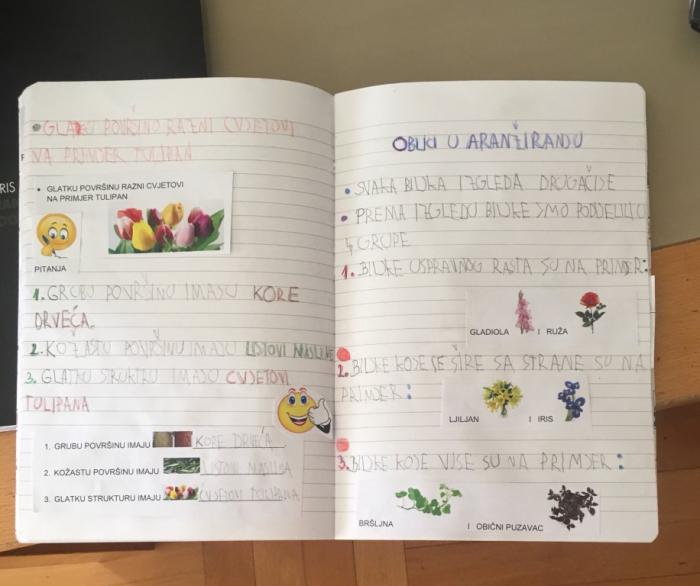 RIS
• GLATKU POVRŠINU RAZNI CVJETOVI
NA PRIMJER TULIPAN
• GLATKU POVRŠINU RAZNI CVJETOVI
NA PRIMJER TULIPAN
PITANJA
1. GRUBU POVRŠINU IMAJU KORE
DRVEĆA.
2. KOŽASTU POVRŠINU IMAJU LISTOVI MASLINE
3. GLATKU STRUKTU IMAJU CVJETOVI
TULIPANA
1. GRUBU POVRŠINU IMAJU KORE DRVEĆA
2. KOŽASTU POVRŠINU IMAJU LISTOVI
3. GLATKU STRUKTURU IMAJU CVJETOVI TULIPANA
OBLICI U ARANŽIRANJU
• SVAKA BILJKA IZGLEDA DRUGAČIJE
• PREMA IZGLEDU BILJKE SMO PODIJELILI U
4 GRUPE
1. BILJKE USPRAVNOG RASTA SU NA PRIMJER:
GLADIOLA I RUŽA
2. BILJKE KOJE SE ŠIRE SA STRANE SU NA
PRIMJER:
LJILJAN I IRIS
3. BILJKE KOJE VISE SU NA PRIMJER:
BRŠLJNA I OBIČNI PUZAVAC